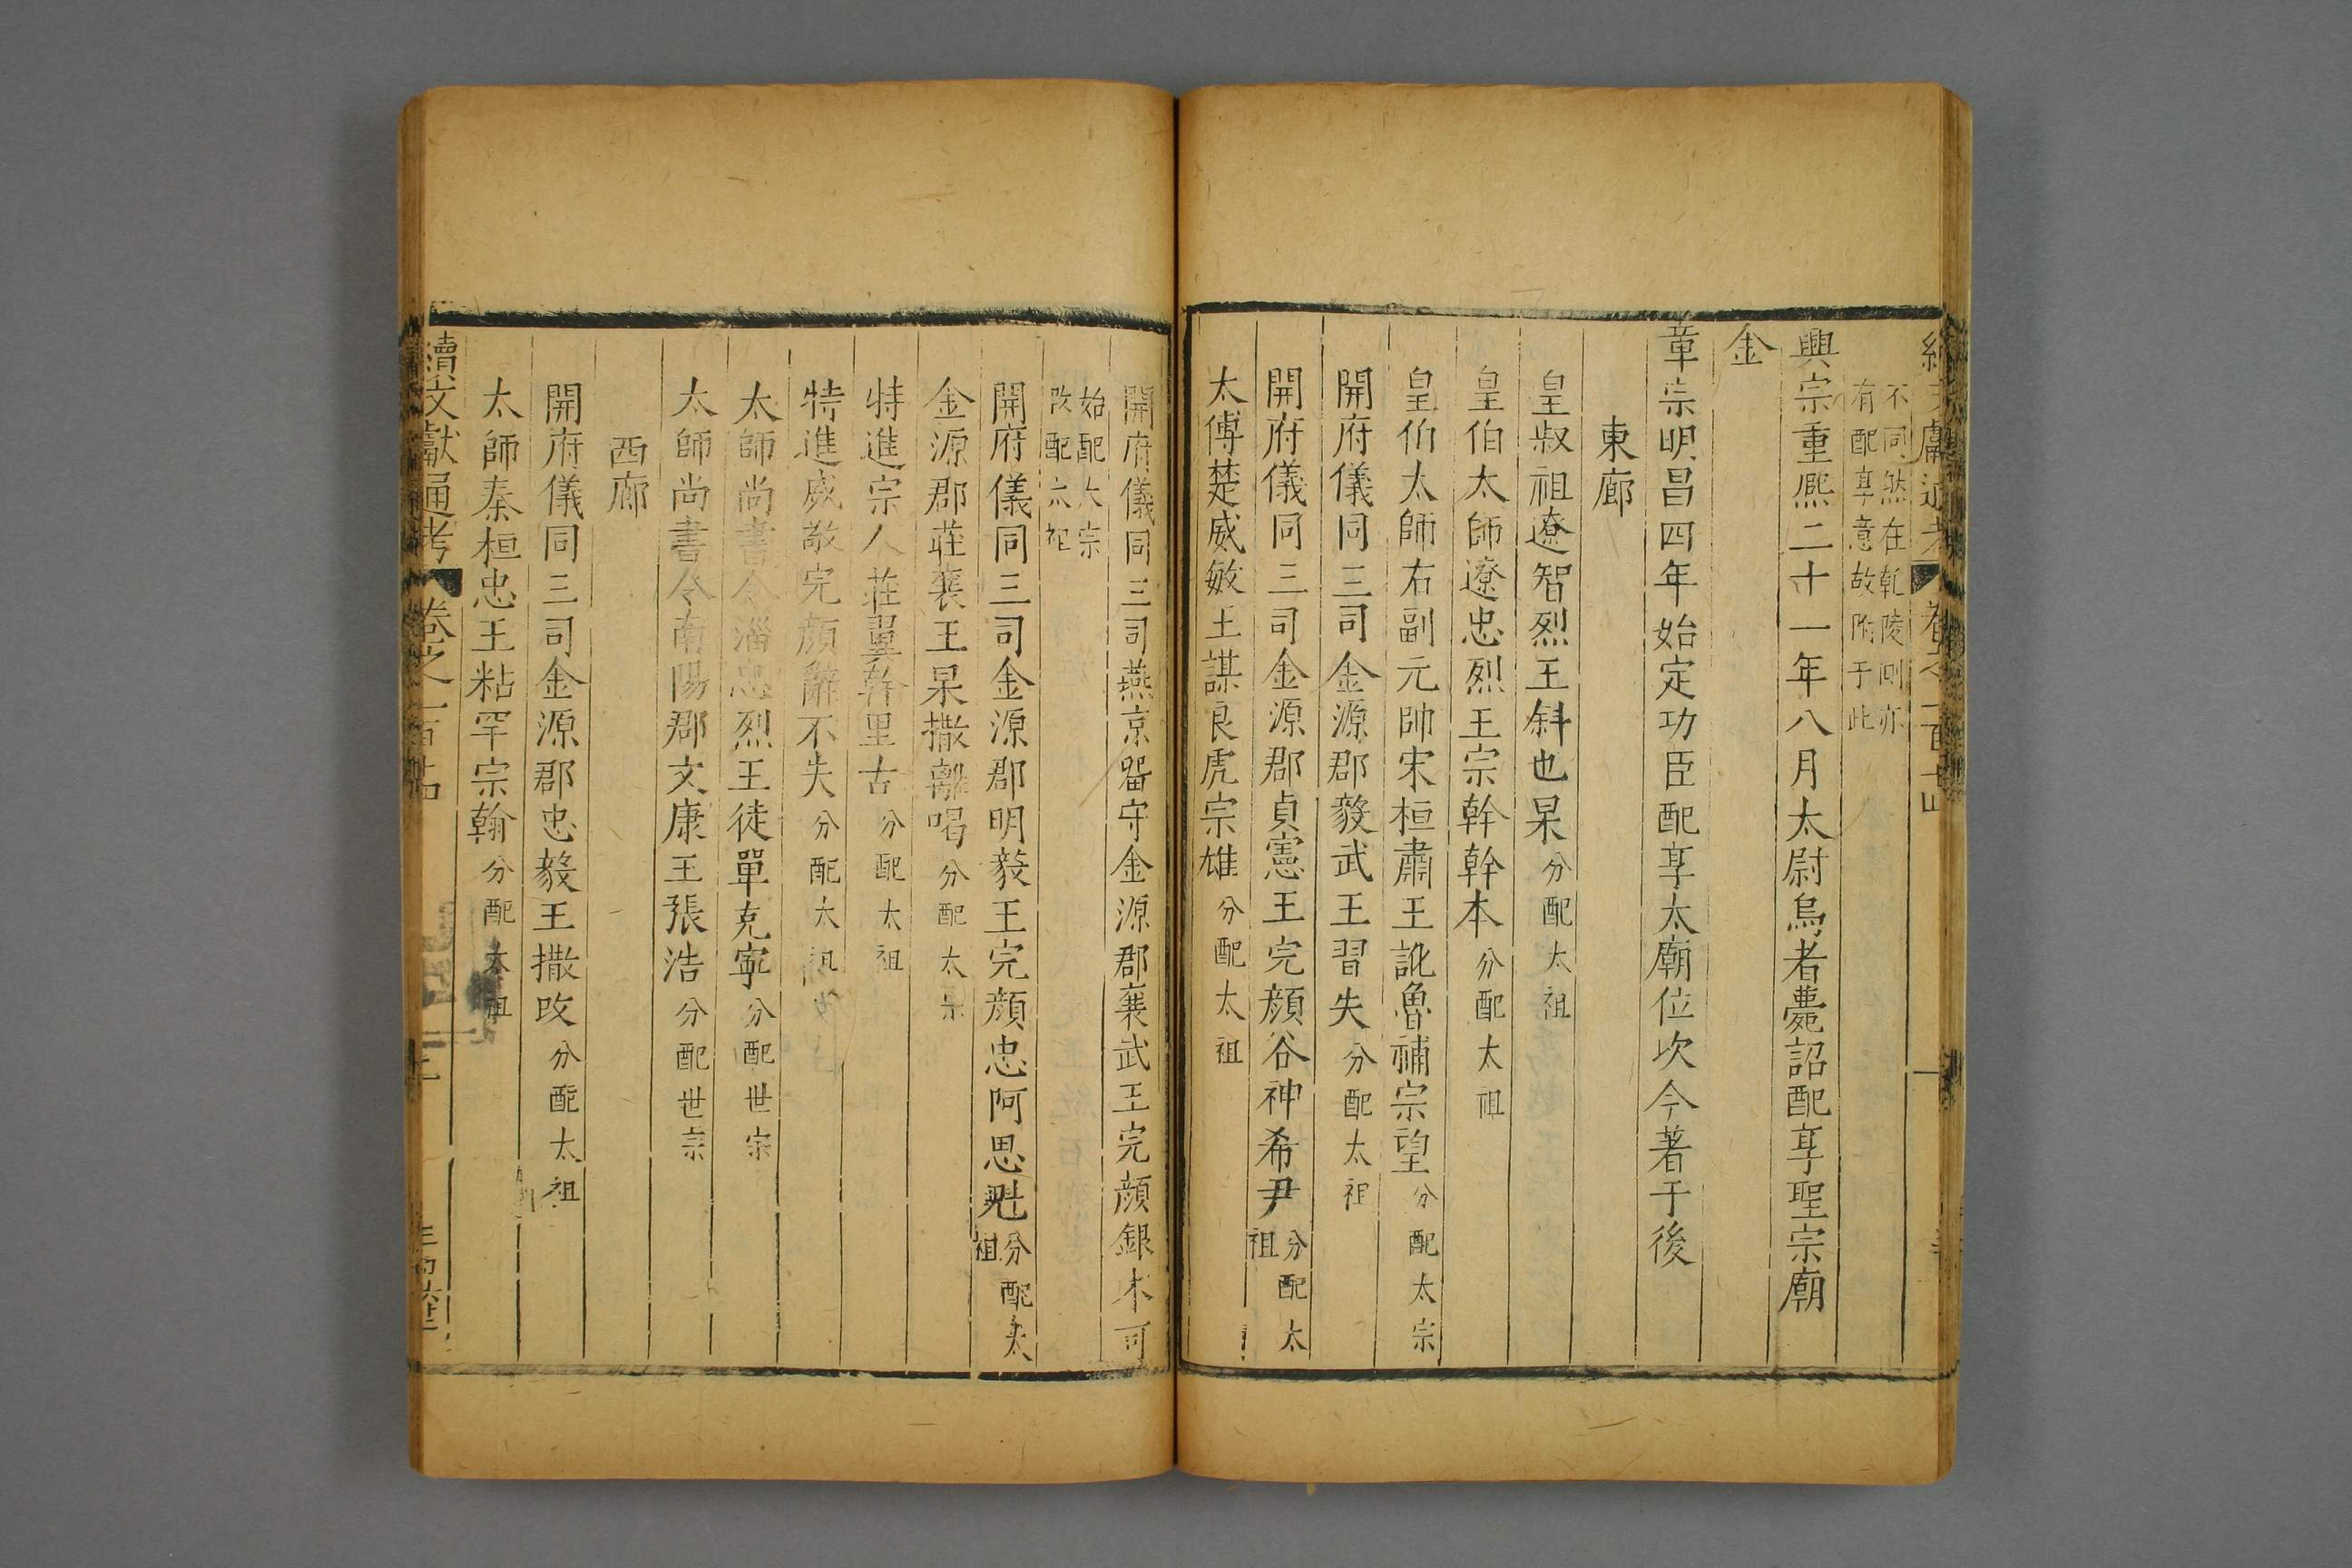 不同然在乾陵則亦
有配享意故附于此
興宗重熈二十一年八月太尉烏者薨詔配享聖宗廟
金
章宗明昌四年始定功臣配享太廟位次今著于後
東廊
皇叔祖遼智烈王斜也杲分配太祖
皇伯太師遼忠烈王宗幹幹本分配太祖
皇伯太師右副元帥宋桓肅王訛魯補宗望分配太宗
開府儀同三司金源郡毅武王習失分配太祖
開府儀同三司金源郡貞憲王完顔谷神希尹分配太祖
太傅楚威敏王謀良虎宗雄分配太祖
開府儀同三司燕京畱守金源郡襄武王完顔銀木可
始配太宗
改配太祖
開府儀同三司金源郡明毅王完顔忠阿思魁分配太祖
金源郡莊襄王杲撒離喝分配太宗
特進宗人莊翼幹里古分配太祖
特進威敬完顔辭不失分配太祖
太師尚書令淄忠烈王徒單克寧分配世宗
太師尚書令南陽郡文康王張浩分配世宗
西廊
開府儀同三司金源郡忠毅王撒改分配太祖
太師秦桓忠王粘罕宗翰分配太祖
續文獻通考 卷之一百十四